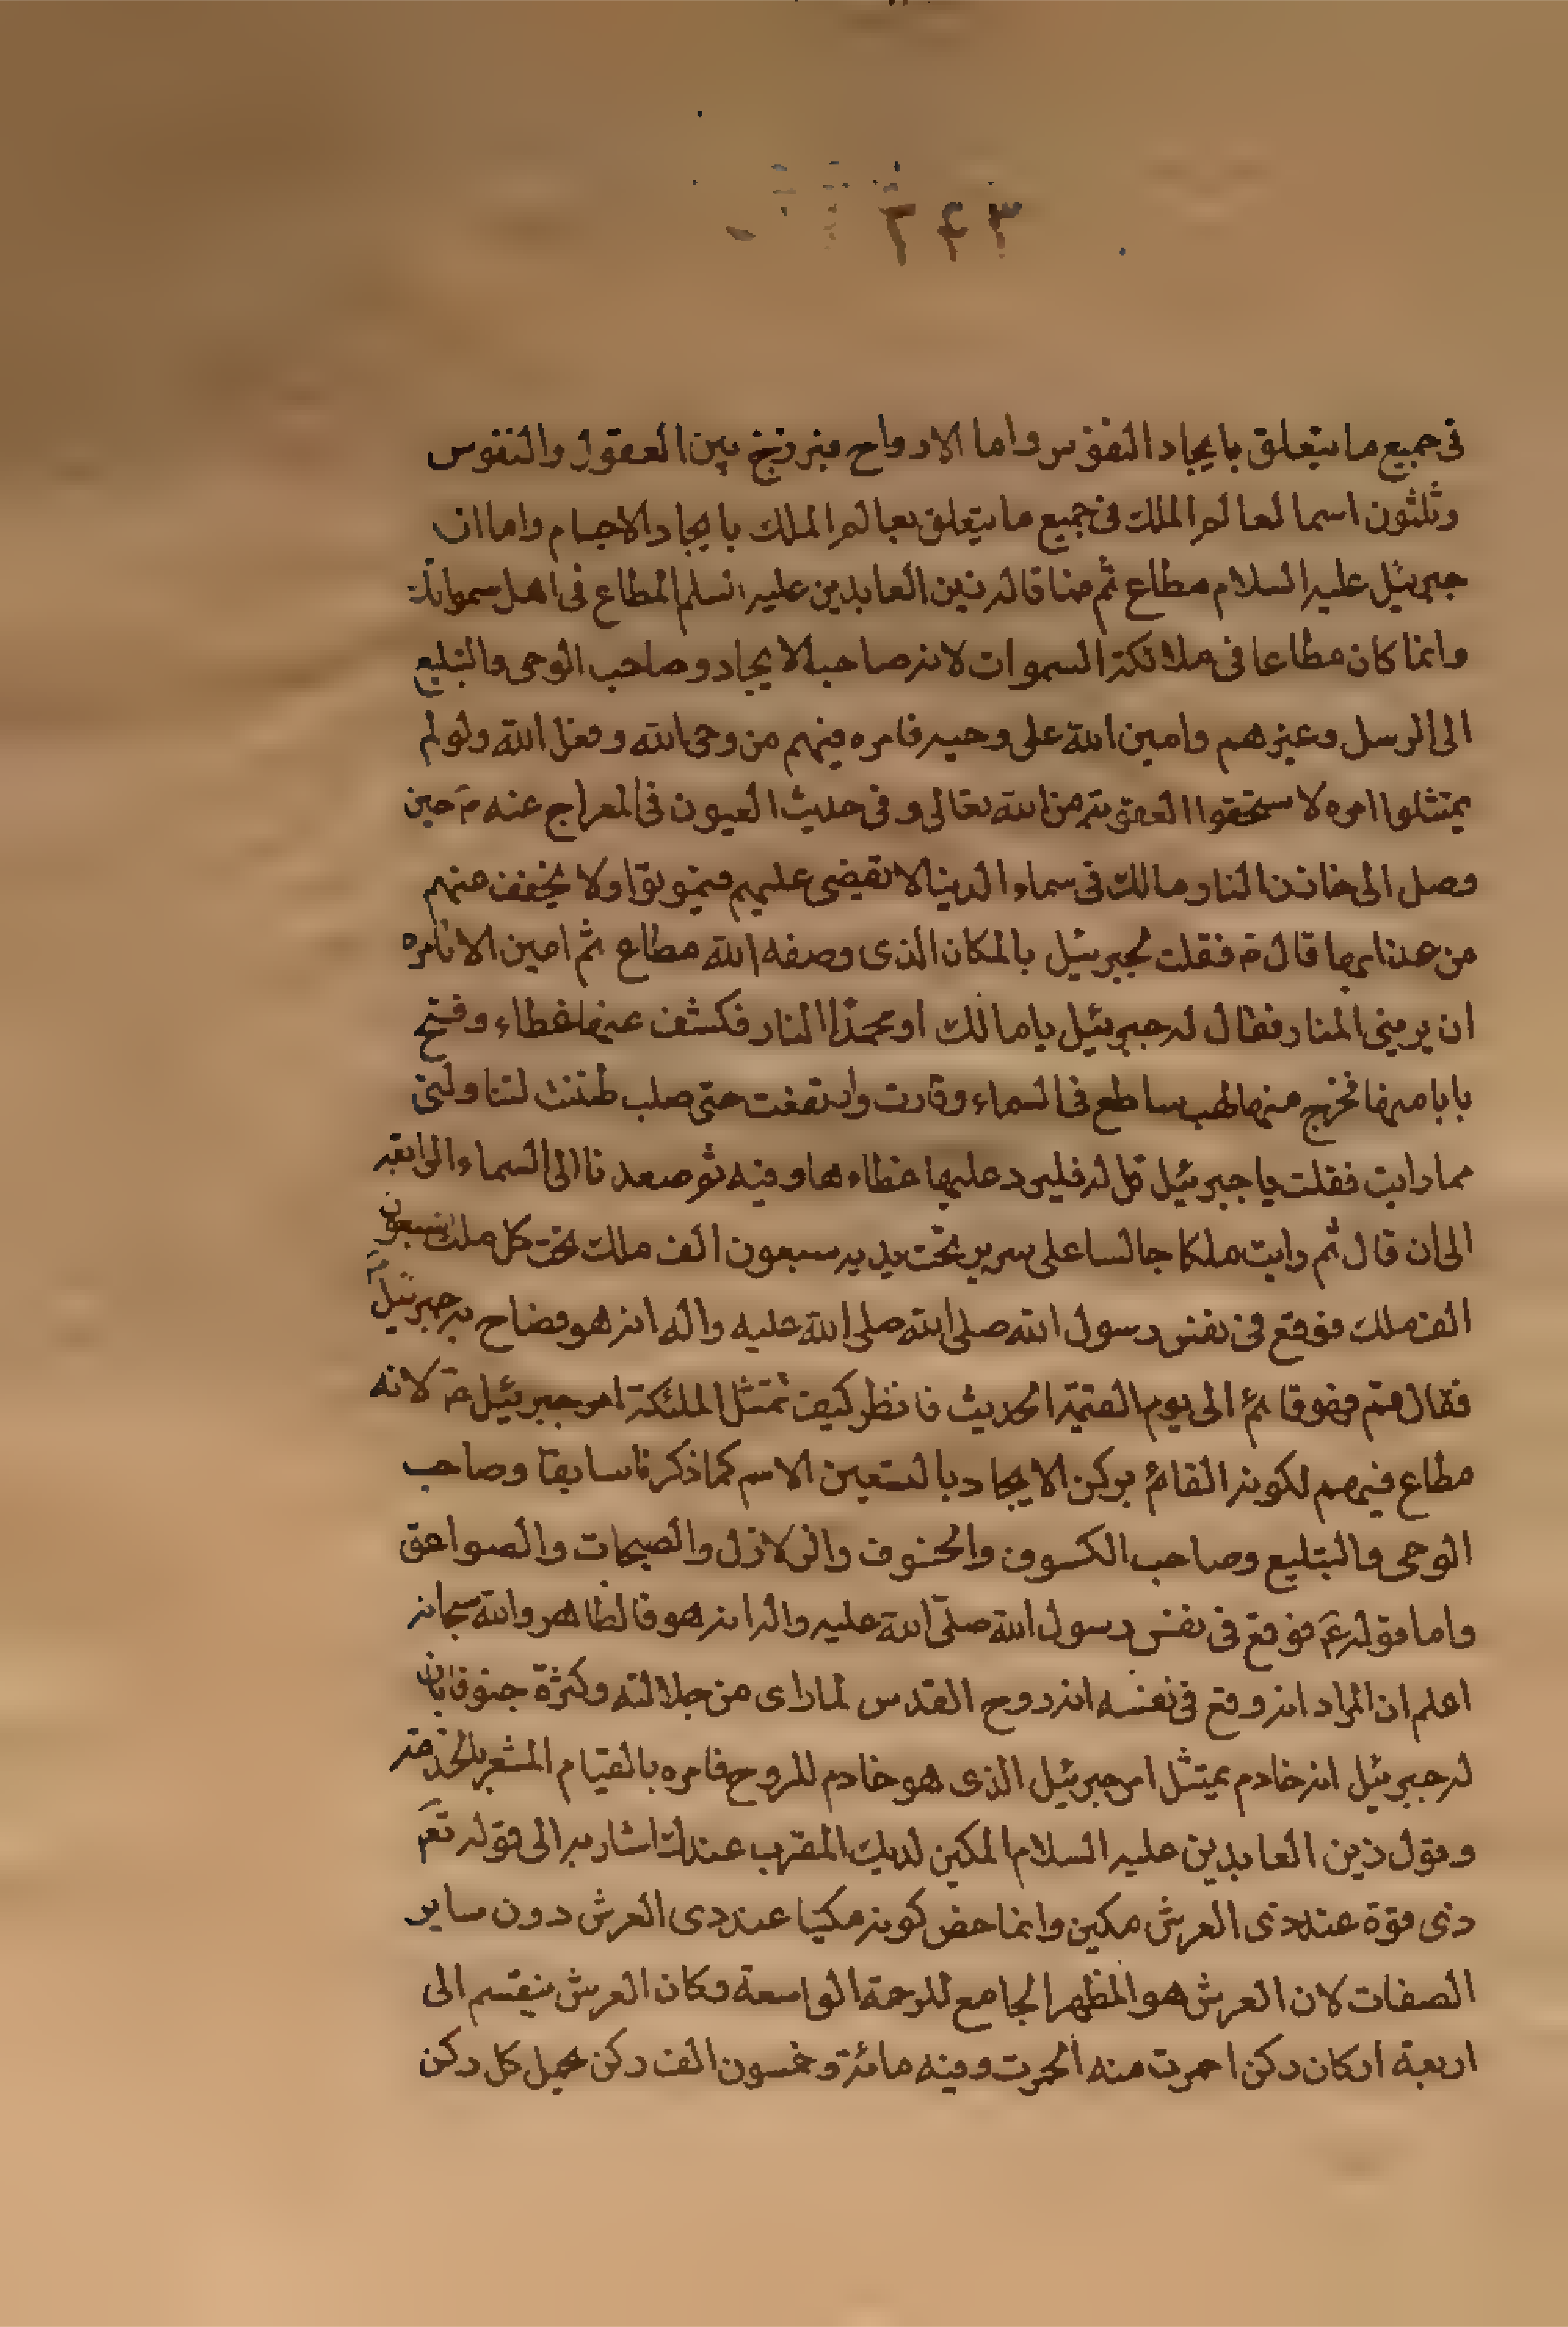 ٣٤٢
فى جميع ما يتعلق بايجاد النفوس واما الارواح فبرزخ بين العقول والنفوس
وثلثون اسما لعالم الملك فى جميع ما يتعلق بعالم الملك بايجاد الاجسام واما ان
جبرئيل عليه السلام مطاع ثم فمنا قال زين العابدين عليه السلم المطاع فى اهل سمواتك
وانما كان مطاعا فى ملائكة السموات لانه صاحب الايجاد وصاحب الوحى والتبليغ
الى الرسل وغيرهم وامين الله على وحيه فامره فيهم من وحى الله وفعل الله ولو لم
يمتثلوا امره لاستحقوا العقوبة من الله تعالى وفى حديث العيون فى المعراج عنه حين
وصل الى خازن النار مالك فى سماء الدينا لا تقضى عليهم فيموتوا ولا يخفف عنهم
من عذابها قال فقلت لجبرئيل بالمكان الذى وصفه الله مطاع ثم امين الا تامره
ان يرينى النار فقال له جبرئيل يا مالك او محمدا النار فكشف عنها غطاء وفتح
بابا منها فخرج منها لهب ساطع فى السماء وفارت وارتفعت حتى طننت لتناولنى
مما رايت فقلت يا جبرئيل قل له فليرد عليها غطاءها وفيه ثم صعدنا الى السماء الرابعة
الى ان قال ثم رايت ملكا جالسا على سرير تحت يديه سبعون الف ملك تحت كل ملك سبعون
الف ملك فوقع فى نفس رسول الله صلى الله صلى الله عليه واله انه هو فصاح به جبرئيل
فقال قم فهو قائم الى يوم القيمة الحديث فانظر كيف تمتثل الملئكة امر جبرئيل لانه
مطاع فيهم لكونه القائم بركن الايجاد بالتعين الاسم كما ذكرنا سابقا وصاحب
الوحى والتبليغ وصاحب الكسوف والخسوف والزلازل والصيحات والصواعق
واما قوله فوقع فى نفس رسول الله صلى الله عليه واله انه هو فالظاهر والله سبحانه
اعلم ان المراد انه وقع فى نفسه انه روح القدس لما راى من جلالته وكثرة جنوده
له جبرئيل انه خادم يمتثل امر جبرئيل الذى هو خادم للروح فامره بالقيام المشعر بالخدمة
وقول زين العابدين عليه السلام المكين لديك المقرب عندك اشار به الى قوله تعم
ذى قوة عند ذى العرش مكين وانما خص كونه مكينا عند ذى العرش دون ساير
الصفات لان العرش هو المظهر الجامع للرحمة الواسعة وكان العرش ينقسم الى
اربعة اركان ركن احمرت منه الحمرت وفيه مائة وخمسون الف ركن يحمل كل ركن